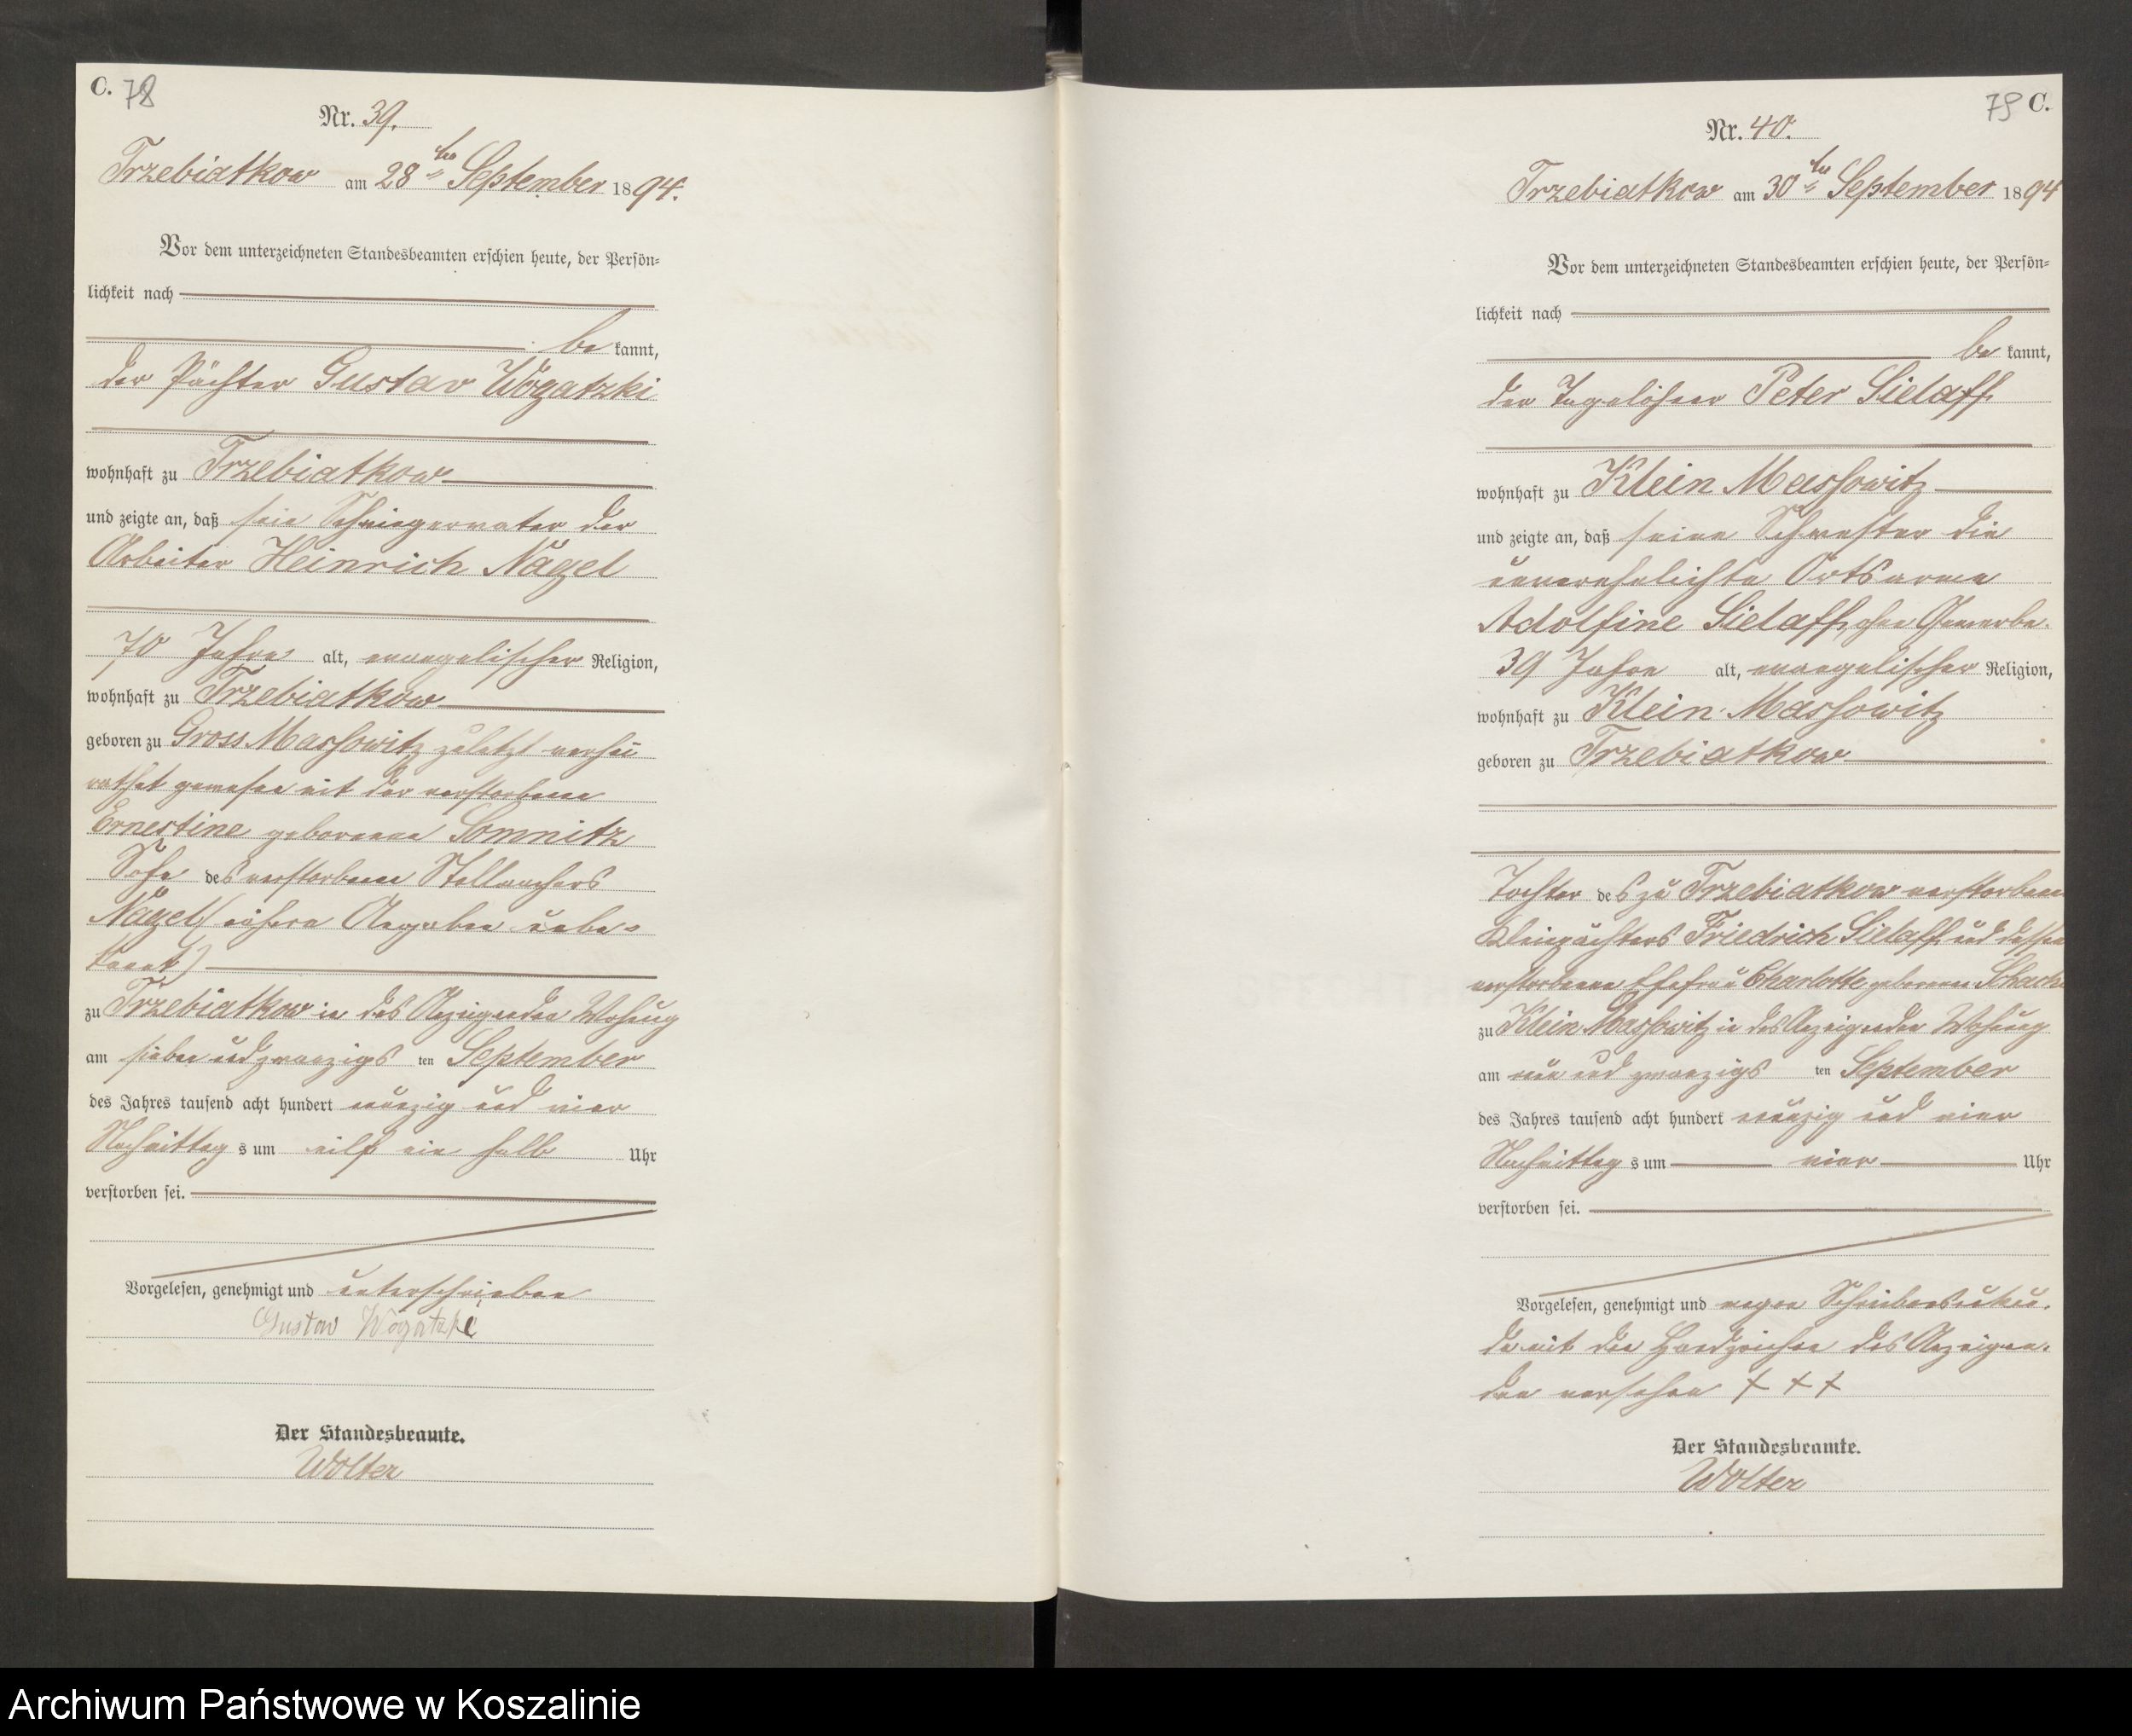 C. 78
Nr. 39.
Trzebiatkow am 28ten September 1894.
Vor dem unterzeichneten Standesbeamten erschien heute, der Persön-
lichkeit nach
be kannt,
der Pächter Gustav Wogatzki
wohnhaft zu Trzebiatkow
und zeigte an, daß sein Schwiegervater der
Arbeiter Heinrich Nagel
70 Jahre alt, evangelischer Religion,
wohnhaft zu Trzebiatkow
geboren zu Gross Massowitz zuletzt verhei
rathet gewesen mit der verstorbenen
Ernestine geborenen Somnitz
Sohn des verstorbenen Stellmachers
Nagel (nähere Angaben unbe-
kannt)
zu Trzebiatkow in des Anzeigenden Wohnung
am sieben und zwanzigs ten September
des Jahres tausend acht hundert neunzig und vier
Nachmittag s um eilf ein halb Uhr
verstorben sei.
Vorgelesen, genehmigt und unterschrieben
Gustav Wogatzki
Der Standesbeamte.
Wolter
79 C.
Nr. 40.
Trzebiatkow am 30ten September 1894
Vor dem unterzeichneten Standesbeamten erschien heute, der Persön-
lichkeit nach
be kannt,
der Tagelöhner Peter Sielaff
wohnhaft zu Klein Massowitz
und zeigte an, daß seine Schwester die
unverehelichte Ortsarme
Adolfine Sielaff, ohne Gewerbe.
39 Jahre alt, evangelischer Religion,
wohnhaft zu Klein Massowitz
geboren zu Trzebiatkow
Tochter des zu Trzebiatkow verstorbenen
Kleinpächters Friedrich Sielaff und dessen
verstorbenen Ehefrau Charlotte geborenen
zu Klein Massowitz in des Anzeigenden Wohnung
am neun und zwanzigs ten September
des Jahres tausend acht hundert neunzig und vier
Nachmittag s um vier Uhr
verstorben sei.
Vorgelesen, genehmigt und wegen Schreibensunkun-
de mit den Handzeichen des Anzeigen-
den versehen + + +
Der Standesbeamte.
Wolter
Archiwum Państwowe w Koszalinie